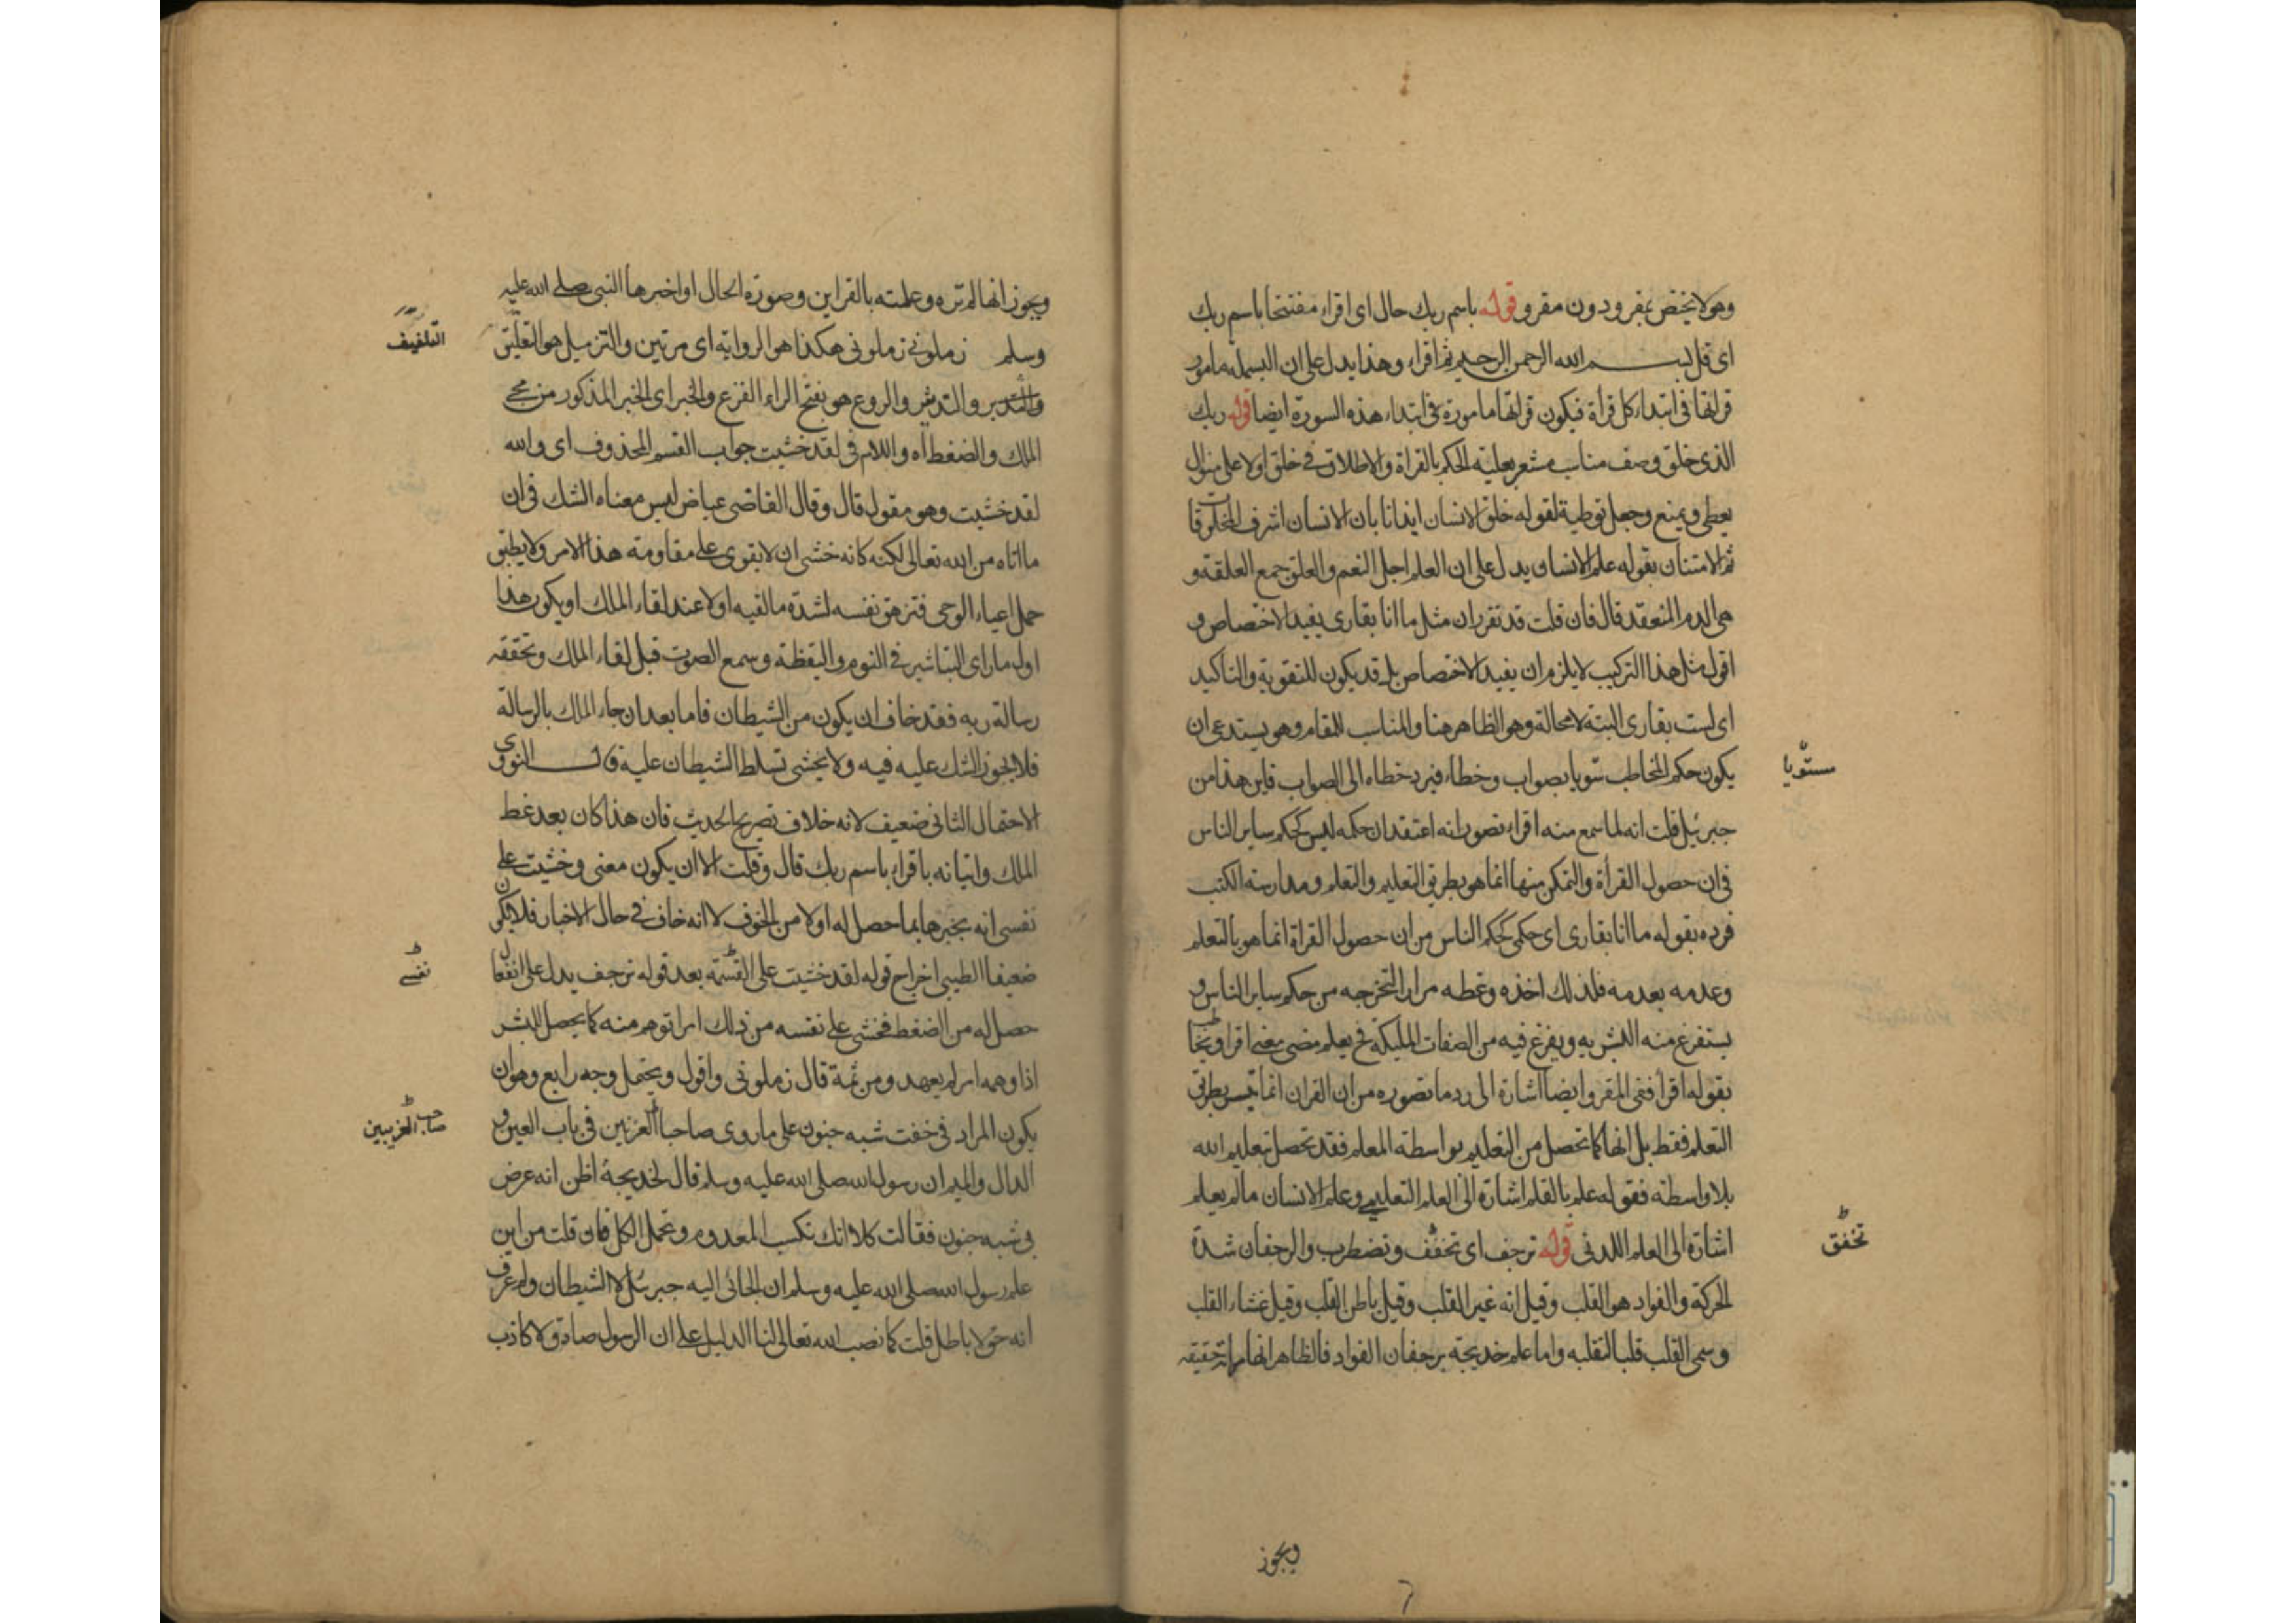 وهو لا يختص بمقرو دون مقرو قوله باسم ربك حال اى اقراء مفتتحا باسم ربك
اى قل بسم الله الرحمن الرحيم ثم اقراء وهذا يدل على ان البسملة مامور
قراتها فى ابتداء كل قرأة فيكون قراتها مامورة فى ابتداء هذه السورة ايضا قوله ربك
الذى خلق وصف مناسب مشعر بعلية الحكم بالقراة والاطلاق فى خلق اولا على منوال
يعطى ويمنع وجعل توطية لقوله خلق الانسان ايذانا بان الانسان اشرف المخلوقات
ثم الامتنان بقوله علم الانسان يدل على ان العلم اجل النعم والعلق جمع العلقة و
هى الدم المنعقد قال فان قلت قد تقرر ان مثل ما انا بقارى يفيد الاختصاص و
اقول مثل هذا التركيب لا يلزم ان يفيد الاختصاص بل قد يكون للتقوية والتاكيد
اى لست بقارى البتة لا محالة وهو الظاهر هنا والمناسب للمقام وهو يستدعى ان
يكون حكم المخاطب شوبا بصواب وخطاء فيرد خطاه الى الصواب فاين هذا من
مستويا
جبرئيل قلت انه لما سمع منه اقراء تصور انه اعتقد ان حكمه ليس كحكم ساير الناس
فى ان حصول القرأة والتمكن منها انما هو بطريق التعليم والتعلم ومدارسة الكتب
فرده بقوله ما انا بقارى اى حكمى كحكم الناس من ان حصول القراة انما هو بالتعلم
وعدمه بعدمه فلذلك اخذه وغطه مرارا لتخرجه من حكم ساير الناس و
يستفرغ منه البشريه ويفرغ فيه من الصفات المليكة فح يعلم مضى معنى اقرا ويخاطب
بقوله اقرأ فتى المقرو ايضا اشارة الى رد ما تصوره من ان القران انما تيسر بطريق
التعلم فقط بل انها كما تحصل من التعليم بواسطة المعلم فقد تحصل بتعليم الله
بلا واسطة فقوله علم بالقلم اشارة الى العلم التعليمى وعلم الانسان ما لم يعلم
اشارة الى العلم اللدنى قوله ترجف اى تخفف وتضطرب والرجفان شدة
تخفق
الحركة والفواد هو القلب وقيل انه غير القلب وقيل باطن القلب وقيل غشاء القلب
وسمى القلب قلبا لتقلبه واما علم خديجة برجفان الفواد فالظاهر انها راته حقيقة
ويجوز
ويجوز انها لم تره وعلمته بالقراين وصورة الحال او اخبرها النبى صلى الله عليه
وسلم زملونى زملونى هكذا هو الرواية اى مرتين والتزميل هو التعليق
التلفيف
والتدبر والتدثير والروع هو بفتح الراء الفزع والخبر اى الخبر المذكور من مجئ
الملك والضغط اه واللام فى لقد خشيت جواب القسم المحذوف اى والله
لقد خشيت وهو مقول قال وقال القاضى عياض ليس معناه الشك فى ان
ما اتاه من الله تعالى لكنه كانه خشى ان لا يقوى على مقاومة هذا الامر ولا يطيق
حمل اعباء الوحى فتزهق نفسه لشدة ما لقيه اولا عند لقاء الملك او يكون هذا
اول ما راى التباشير فى النوم واليقظة وسمع الصوت قبل لقاء الملك وتحققه
رسالة ربه فقد خاف ان يكون من الشيطان فاما بعد ان جاء الملك بالرسالة
فلا يجوز الشك عليه فيه ولا يخشى تسلط الشيطان عليه قال النووى
الاحتمال الثانى ضعيف لانه خلاف تصريح الحديث فان هذا كان بعد غط
الملك واتيانه باقراء باسم ربك قال وقلت الا ان يكون معنى وخشيت على
نفسى انه يخبرها بما حصل له اولا من الخوف لا انه خاف فى حال الاخبار فلا يكون
ضعيفا الطيبى اخراج قوله لقد خشيت على القسمة بعد قوله ترجف يدل على انفعال
نفسى
حصل له من الضغط فخشى على نفسه من ذلك امرا توهم منه كما يحصل للبشر
اذا وهمه امر لم يعهد ومن ثمة قال زملونى واقول ويحتمل وجه رابع وهو ان
يكون المراد فى خفت شبه جنون على ما روى صاحبا الغزنين فى باب العين و
صاحب الغريبين
الدال والميم ان رسول الله صلى الله عليه وسلم قال لخديجة اظن انه عرض
لى شبه جنون فقالت كلا انك تكسب المعدوم وتحمل الكل فان قلت من اين
علم رسول الله صلى الله عليه وسلم ان الجائى اليه جبرئيل لا الشيطان ولم عرف
انه حق لا باطل قلت كما نصب الله تعالى لنا الدليل على ان الرسول صادق لا كاذب